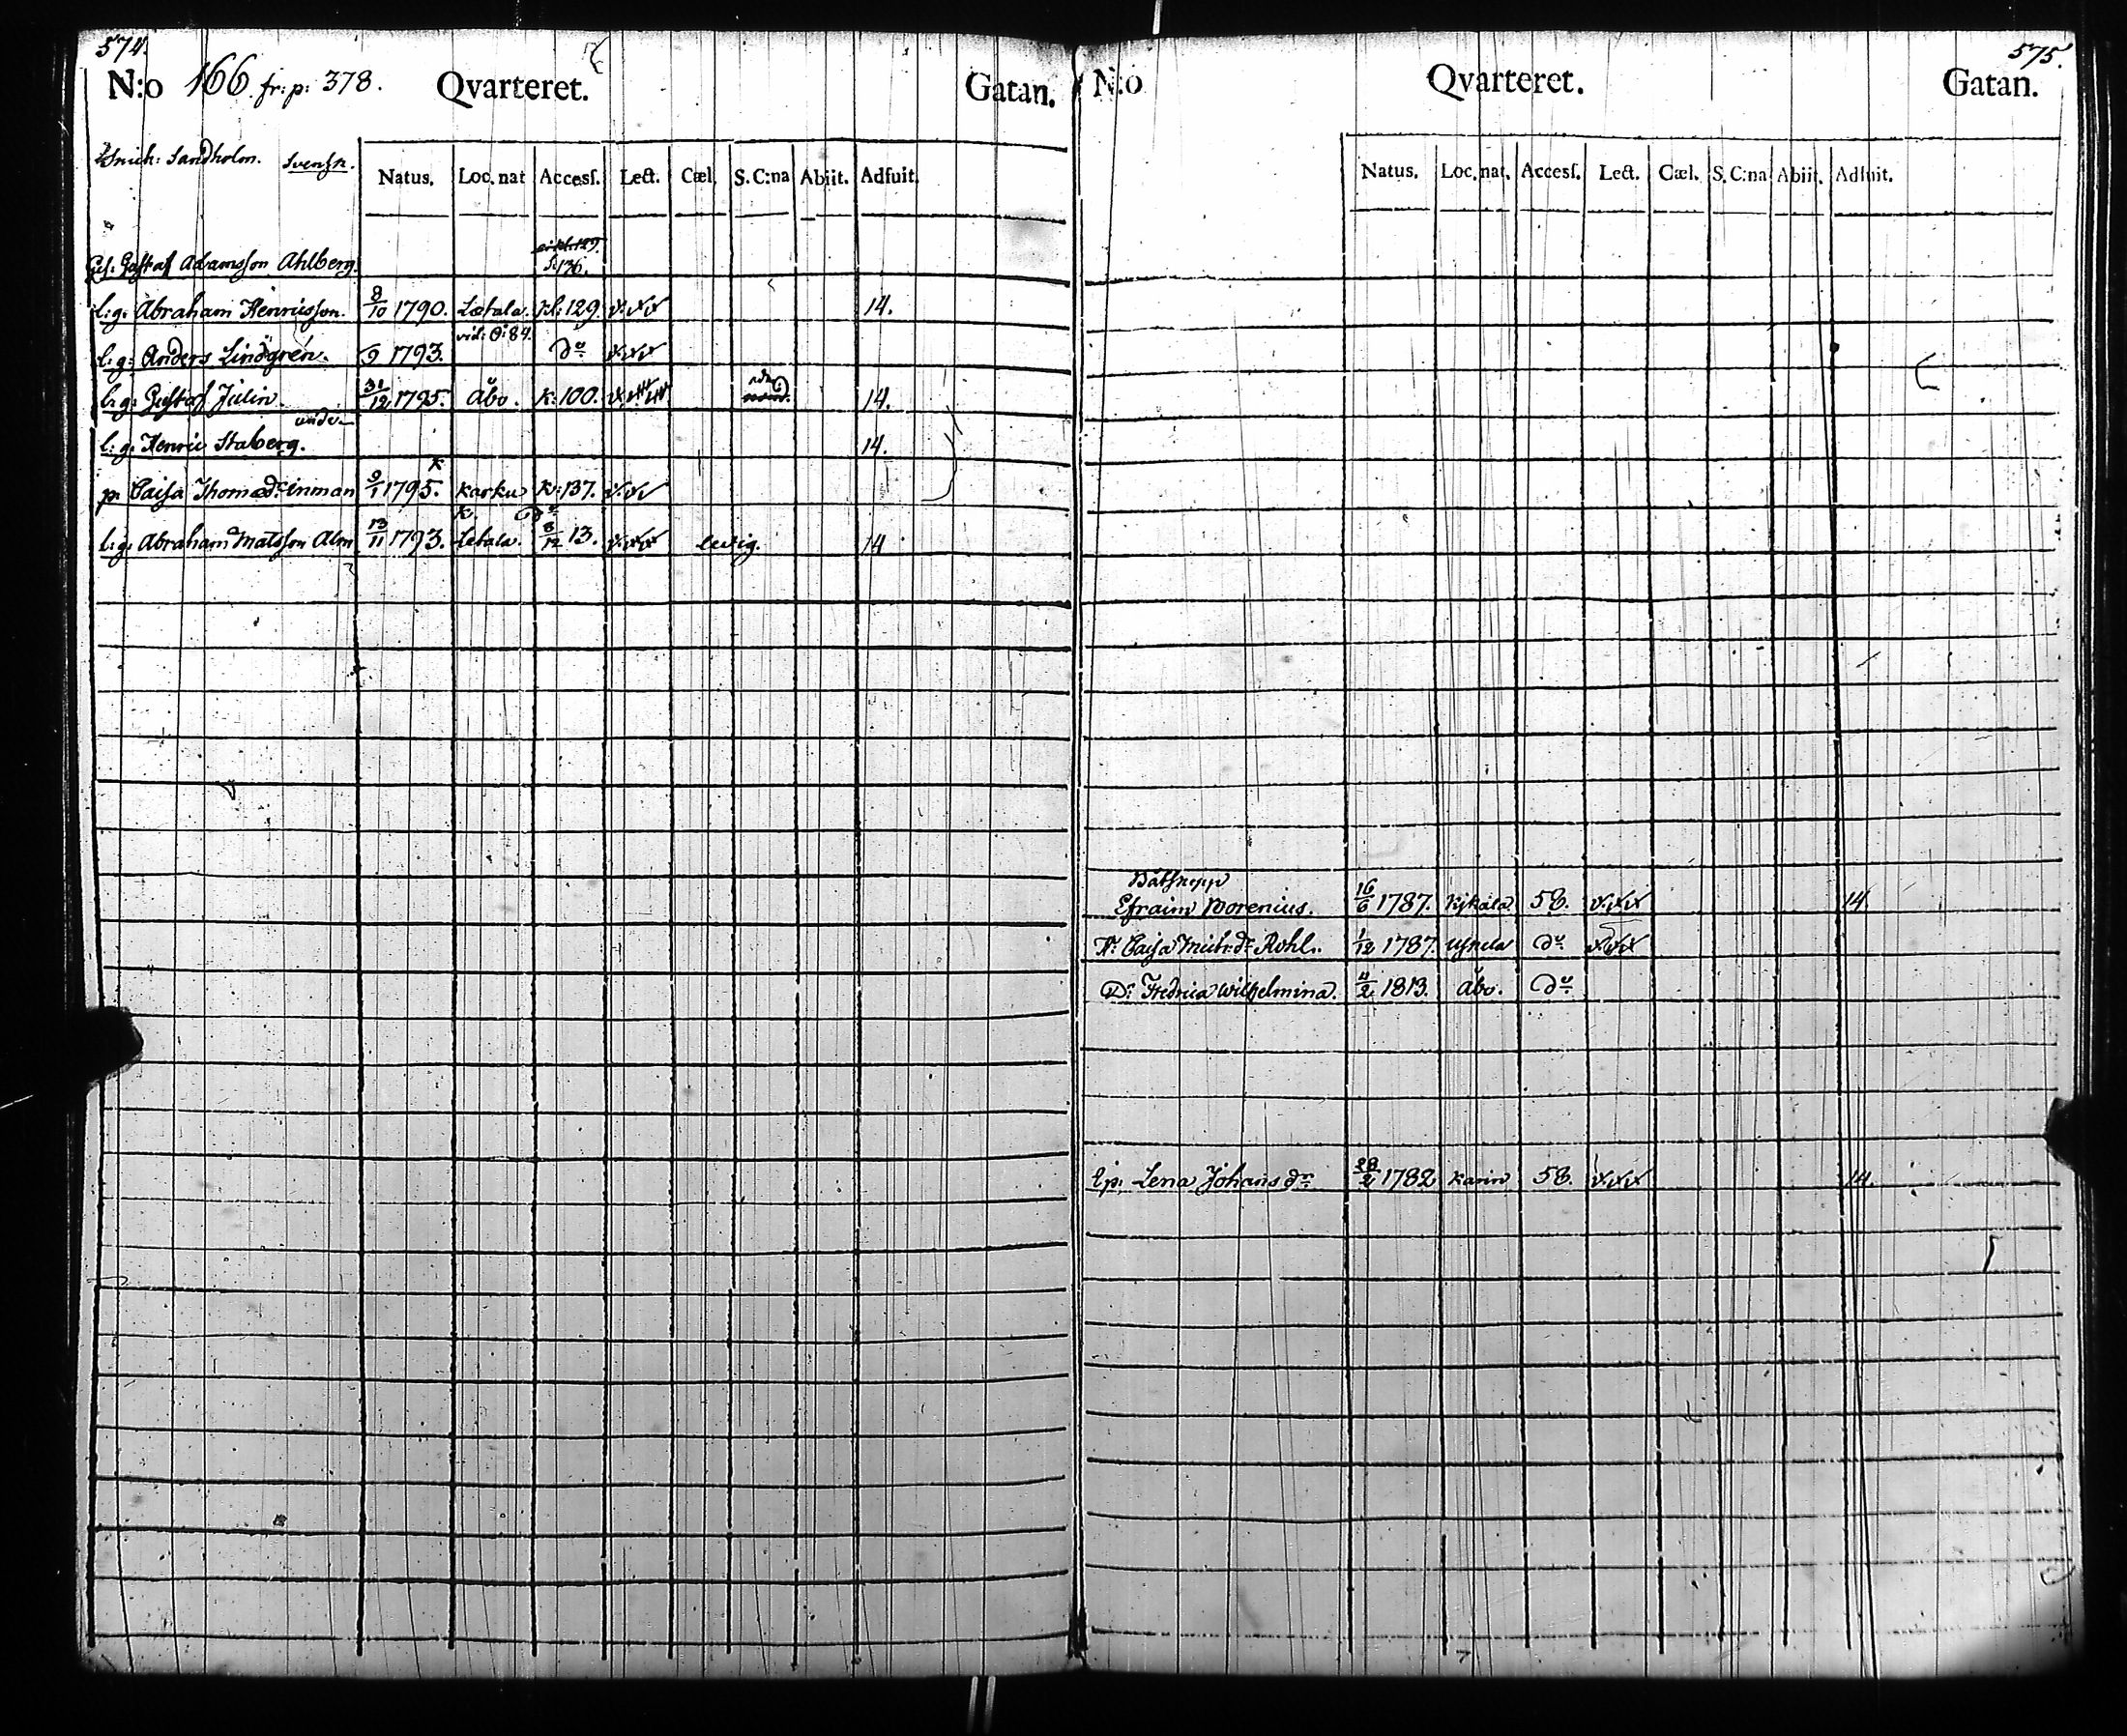 574.
N:o 166. fr: p: 378. Qvarteret. Gatan.
Sandholm. Svensk.
Natus. Loc. nat Accesſ. Lect. Cæl. S. C:na Abiit. Adfuit.
Ges: Gustaf Adamsson Ahlberg. S: 136.
l: g: Abraham Henricsson. 8/10 1790. Letala. kl: 129. 14.
vid: O: 84.
l: g: Anders Lindgren. 9 1793. do
l: g: Gustaf Julin. 31/12 1795. Åbo. k: 100. 14.
l: g: Henric Staberg. 14.
p: Caisa Thomædr Inman 9/1 1795. Karku k: 137.
K. do
l: g: Abraham Matsson Alm 13/11 1793. Letala. 8/12 13. ledig. 14
575.
N:o Qvarteret. Gatan.
Natus. Loc. nat. Accesſ. Lect. Cæl. S. C:na Abiit. Adfuit.
Efraim Borenius. 16/6 1787. Kjkala 58. 14
H: Caisa Mich:dr Rohl. 1/12 1787. Uskela do
Dr Fredrica Wilhelmina. 4/2 1813. Åbo. do
Ep: Lena Johansdr 28/2 1782 Karin 58. 14.